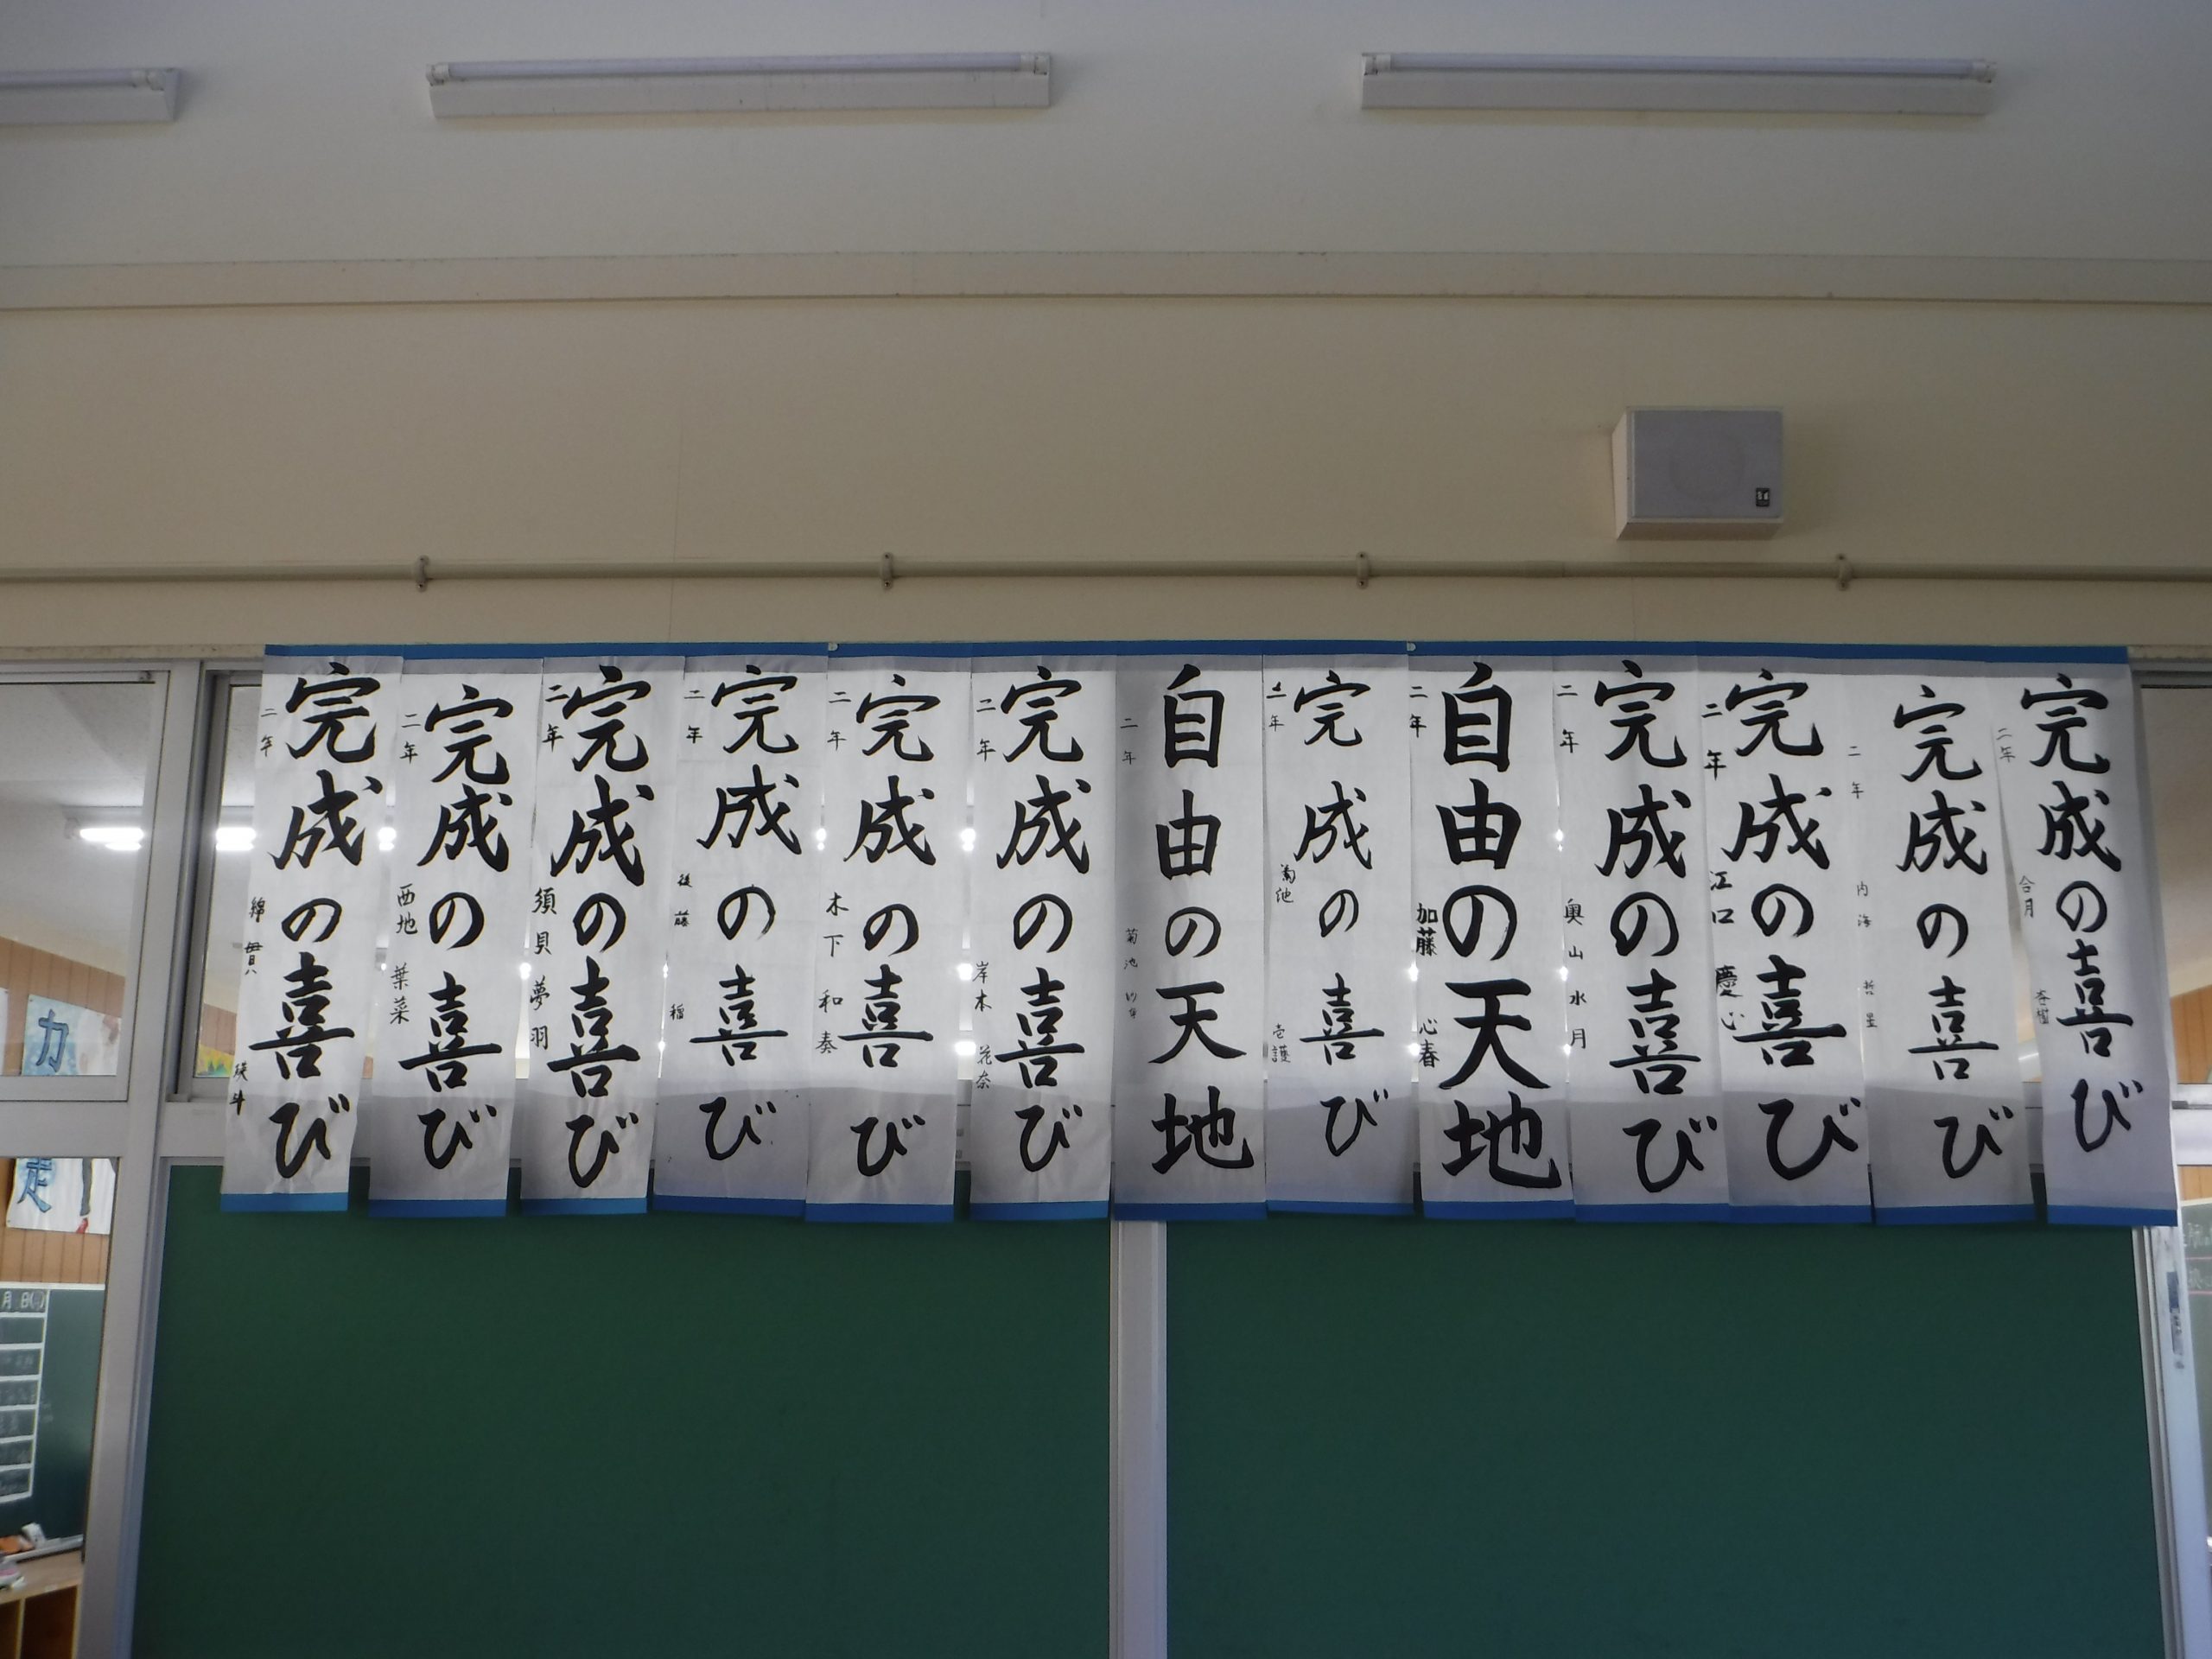 完成の喜び
二年
合月
完成の喜び
二年
内海 哲星
完成の喜び
二年
江口 慶心
完成の喜び
二年
奥山 水月
自由の天地
二年
加藤 心春
完成の喜び
二年
菊池 壱護
自由の天地
二年
菊池
完成の喜び
二年
岸本 花奈
完成の喜び
二年
木下 和奏
完成の喜び
二年
後藤 稲
完成の喜び
二年
須貝 夢羽
完成の喜び
二年
西地 葉菜
完成の喜び
二年
綿貫 瑛斗
力
走
月 日( )